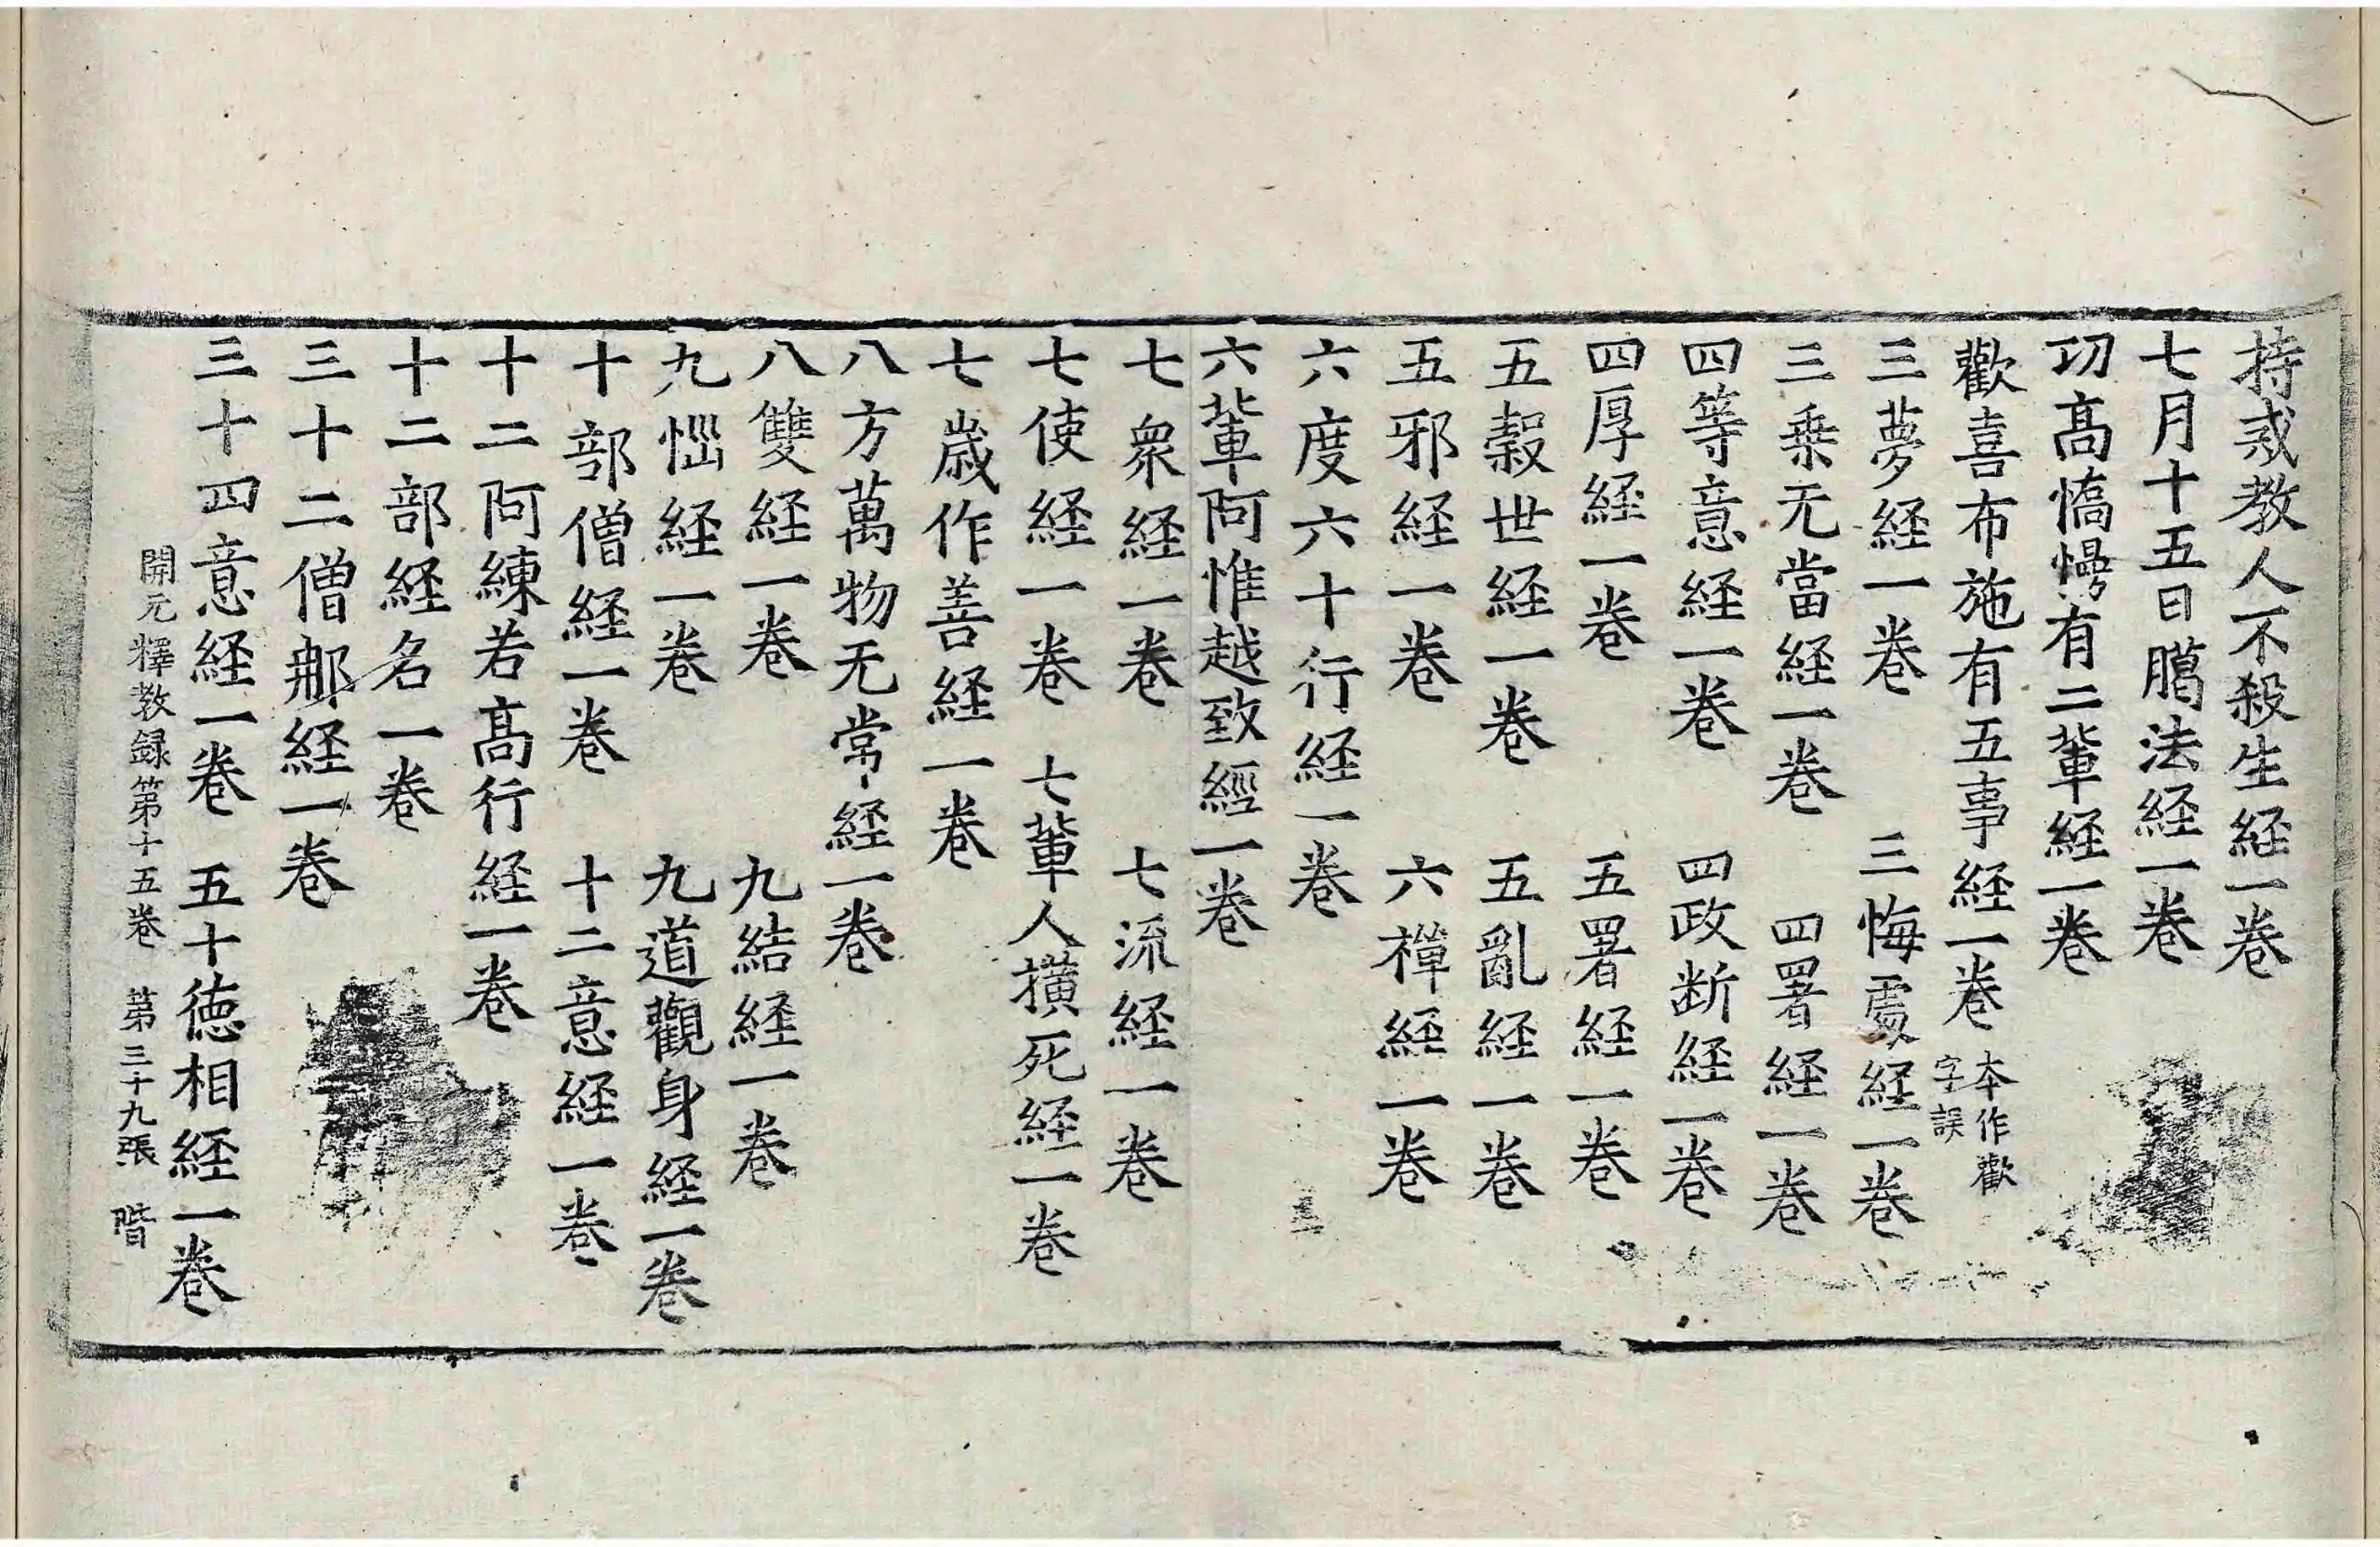 持戒教人不殺生経一卷
七月十五日臈法経一卷
功高憍慢有二軰経一卷
歡喜布施有五事経一卷 本作歡字誤
三夢経一卷 三悔處経一卷
三乗无當経一卷 四署経一卷
四等意経一卷 四政断経一卷
四厚経一卷 五署経一卷
五穀世経一卷 五亂経一卷
五邪経一卷 六禪経一卷
六度六十行経一卷
六軰阿惟越致經一卷
七衆経一卷 七流経一卷
七使経一卷 七軰人撗死経一卷
七歳作善経一卷
八方萬物无常経一卷
八雙経一卷 九結経一卷
九惱経一卷 九道觀身経一卷
十部僧経一卷 十二意経一卷
十二阿練若髙行経一卷
十二部経名一卷
三十二僧那経一卷
三十四意経一卷 五十徳相経一卷
開元釋教録第十五卷 第三十九張 階